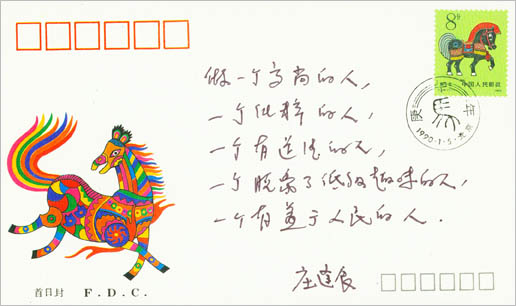 8分
中国人民邮政
庚午年
1990·1·5·北京
做一个高尚的人,
一个纯粹的人,
一个有道德的人,
一个脱离了低级趣味的人,
一个有益于人民的人.
首日封 F. D. C.